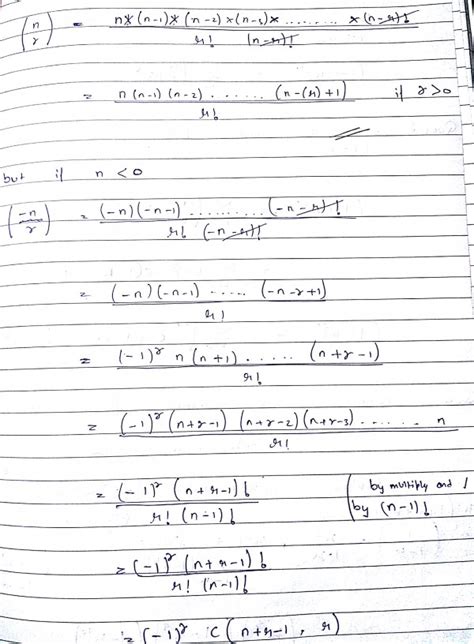 (n/r) = n × (n-1) × (n-2) × (n-3) × ........ × (n-r)! / r! (n-r)!
= n(n-1)(n-2) ...... (n-(r)+1) / r! if r>0
but if n < 0
(-n/r) = (-n)(-n-1) .......... (-n-r)! / r! (-n-r)!
= (-n)(-n-1) ..... (-n-r+1) / r!
= (-1)^r n(n+1) ..... (n+r-1) / r!
= (-1)^r (n+r-1) (n+r-2)(n+r-3) ...... n / r!
= (-1)^r (n+r-1)! / r! (n-1)! by multiply and /
by (n-1)!
= (-1)^r (n+r-1)! / r! (n-1)!
= (-1)^r C(n+r-1, r)